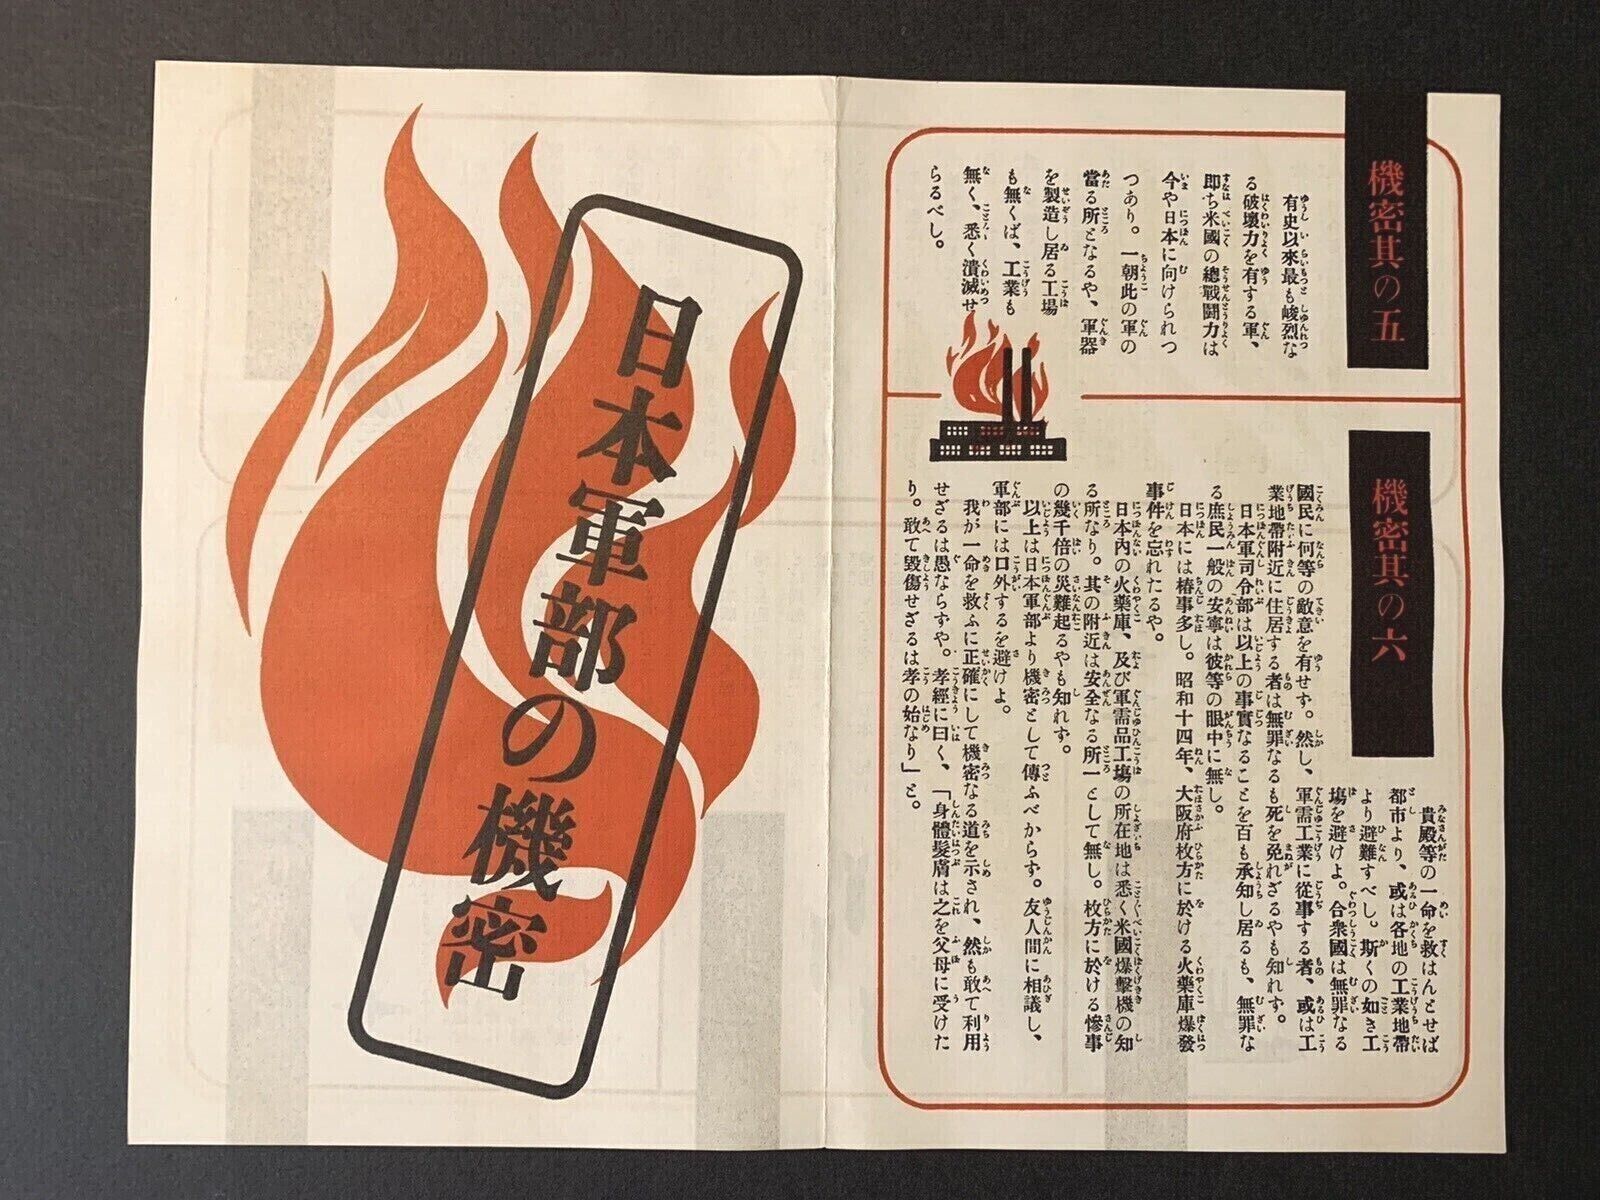 機密其の五
有史以來最も峻烈な
る破壞力を有する軍、
即ち米國の總戰鬪力は
今や日本に向けられつ
つあり。一朝此の軍の
當る所となるや、軍器
を製造し居る工場
も無くば、工業も
無く、悉く潰滅せ
らるべし。
機密其の六
貴殿等の一命を救はんとせば
都市より、或は各地の工業地帶
より避難すべし。斯くの如き工
場を避けよ。合衆國は無罪なる
國民に何等の敵意を有せず。然し、軍需工業に從事する者、或は工
業地帶附近に住居する者は無罪なるも死を免れざるやも知れず。
日本軍司令部は以上の事實なることを百も承知し居るも、無罪な
る庶民一般の安寧は彼等の眼中に無し。
日本には椿事多し。昭和十四年、大阪府枚方に於ける火藥庫爆發
事件を忘れたるや。
日本內の火藥庫、及び軍需品工場の所在地は悉く米國爆擊機の知
る所なり。其の附近は安全なる所一として無し。枚方に於ける慘事
の幾千倍の災難起るやも知れず。
以上は日本軍部より機密として傳ふべからず。友人間に相議し、
軍部には口外するを避けよ。
我が一命を救ふに正確にして機密なる道を示され、然も敢て利用
せざるは愚ならずや。孝經に曰く、「身體髮膚は之を父母に受けた
り。敢て毀傷せざるは孝の始なり」と。
日本軍部の機密